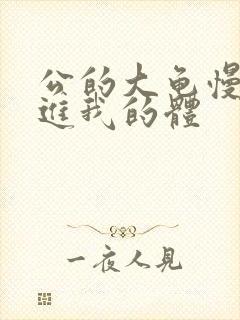 公的大龟慢
进我的體
一夜人見